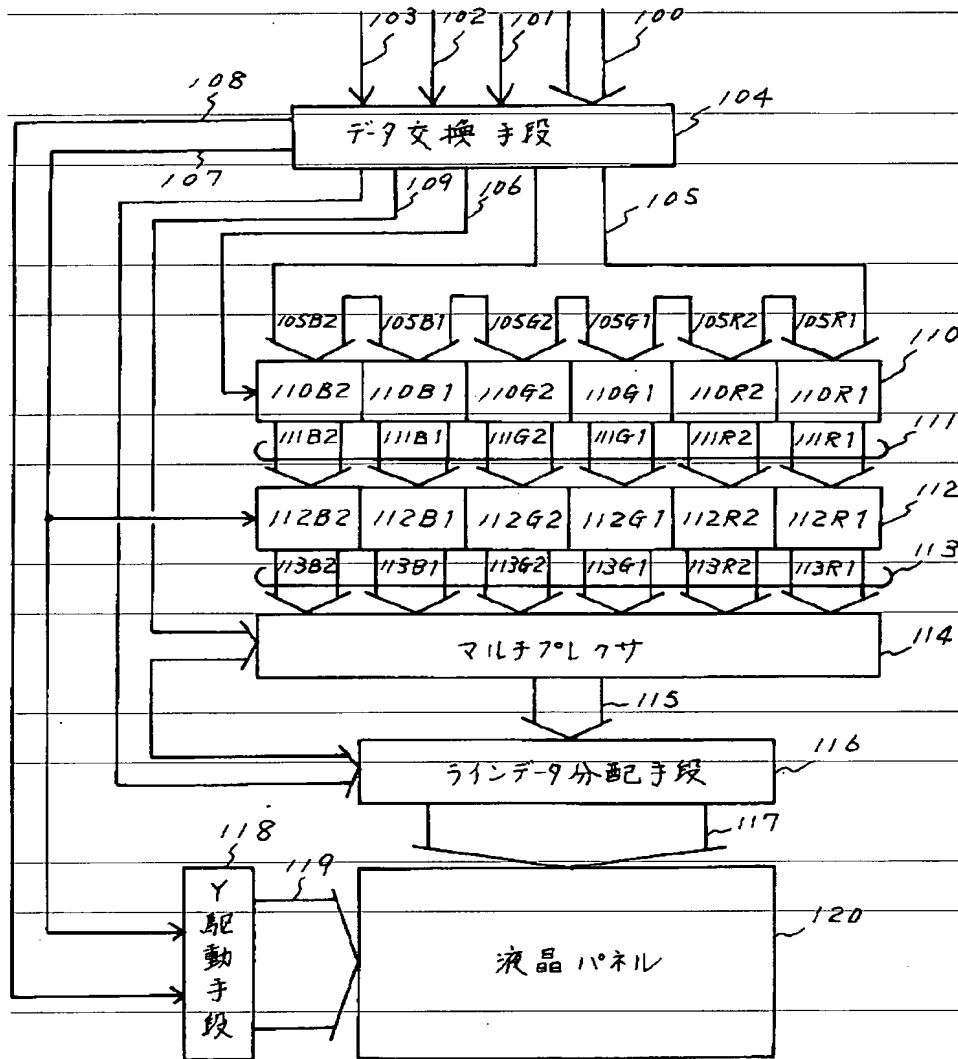 103 102 101 100
108
104
データ交換手段
107
109 106
105
105B2 105B1 105G2 105G1 105R2 105R1
110
110B2 110B1 110G2 110G1 110R2 110R1
111B2 111B1 111G2 111G1 111R2 111R1
111
112B2 112B1 112G2 112G1 112R2 112R1
112
113B2 113B1 113G2 113G1 113R2 113R1
113
マルチプレクサ
114
115
ラインデータ分配手段
116
117
118
119
Y駆動手段
液晶パネル
120